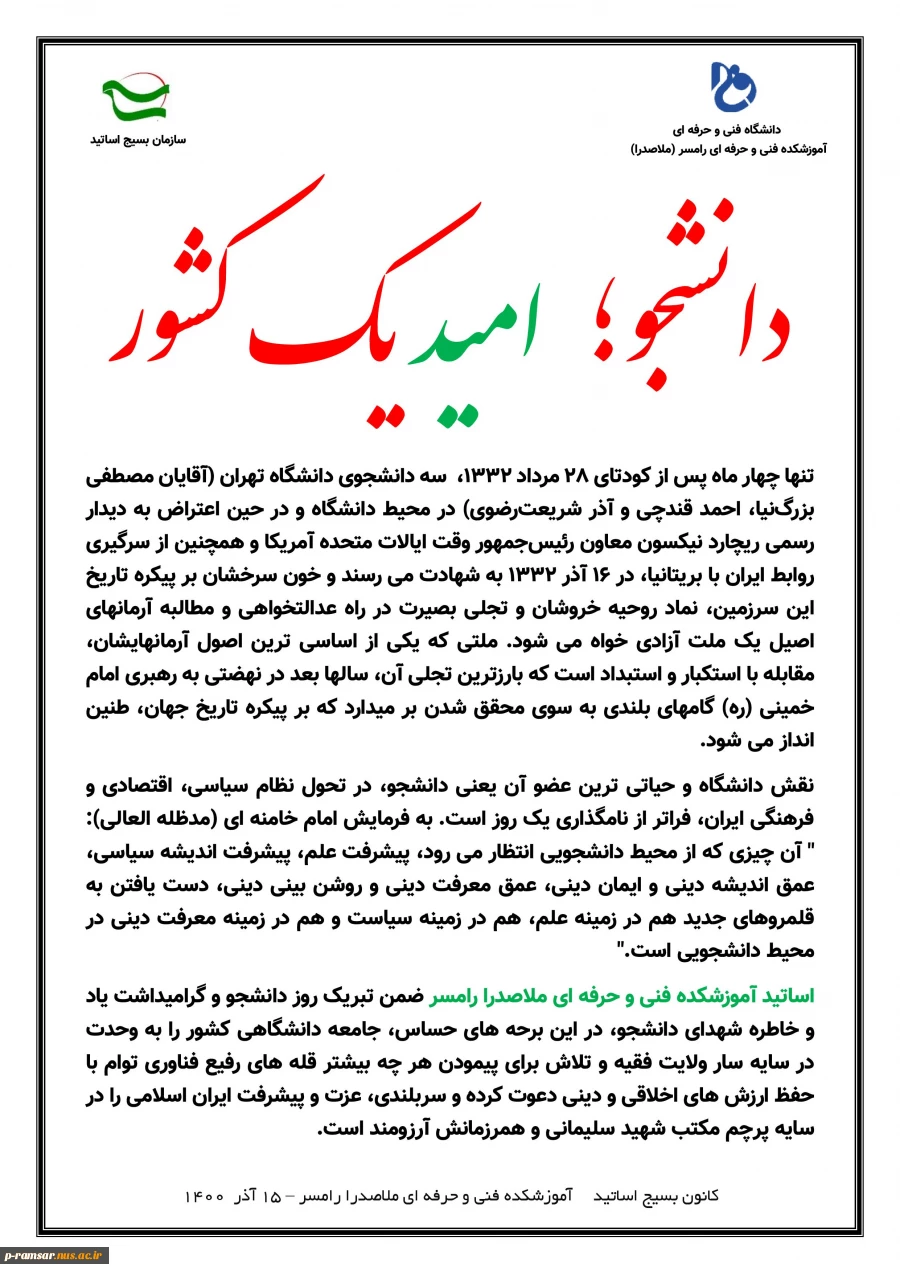 دانشگاه فنی و حرفه ای
آموزشکده فنی و حرفه ای رامسر (ملاصدرا)
سازمان بسیج اساتید
دانشجو؛ امید یک کشور
تنها چهار ماه پس از کودتای ۲۸ مرداد ۱۳۳۲، سه دانشجوی دانشگاه تهران (آقایان مصطفی
بزرگ‌نیا، احمد قندچی و آذر شریعت‌رضوی) در محیط دانشگاه و در حین اعتراض به دیدار
رسمی ریچارد نیکسون معاون رئیس‌جمهور وقت ایالات متحده آمریکا و همچنین از سرگیری
روابط ایران با بریتانیا، در ۱۶ آذر ۱۳۳۲ به شهادت می رسند و خون سرخشان بر پیکره تاریخ
این سرزمین، نماد روحیه خروشان و تجلی بصیرت در راه عدالتخواهی و مطالبه آرمانهای
اصیل یک ملت آزادی خواه می شود. ملتی که یکی از اساسی ترین اصول آرمانهایشان،
مقابله با استکبار و استبداد است که بارزترین تجلی آن، سالها بعد در نهضتی به رهبری امام
خمینی (ره) گامهای بلندی به سوی محقق شدن بر میدارد که بر پیکره تاریخ جهان، طنین
انداز می شود.
نقش دانشگاه و حیاتی ترین عضو آن یعنی دانشجو، در تحول نظام سیاسی، اقتصادی و
فرهنگی ایران، فراتر از نامگذاری یک روز است. به فرمایش امام خامنه ای (مدظله العالی):
" آن چیزی که از محیط دانشجویی انتظار می رود، پیشرفت علم، پیشرفت اندیشه سیاسی،
عمق اندیشه دینی و ایمان دینی، عمق معرفت دینی و روشن بینی دینی، دست یافتن به
قلمروهای جدید هم در زمینه علم، هم در زمینه سیاست و هم در زمینه معرفت دینی در
محیط دانشجویی است."
اساتید آموزشکده فنی و حرفه ای ملاصدرا رامسر ضمن تبریک روز دانشجو و گرامیداشت یاد
و خاطره شهدای دانشجو، در این برحه های حساس، جامعه دانشگاهی کشور را به وحدت
در سایه سار ولایت فقیه و تلاش برای پیمودن هر چه بیشتر قله های رفیع فناوری توام با
حفظ ارزش های اخلاقی و دینی دعوت کرده و سربلندی، عزت و پیشرفت ایران اسلامی را در
سایه پرچم مکتب شهید سلیمانی و همرزمانش آرزومند است.
کانون بسیج اساتید آموزشکده فنی و حرفه ای ملاصدرا رامسر – ۱۵ آذر ۱۴۰۰
p-ramsar.nus.ac.ir